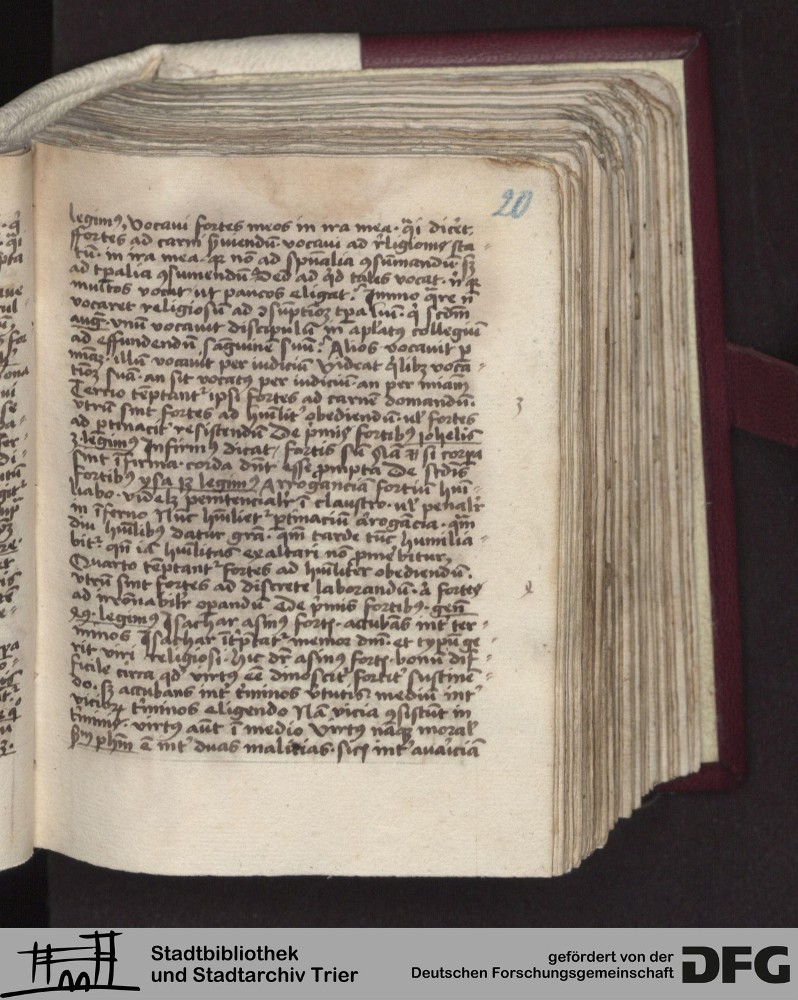 20
legimꝰ, Vocavi fortes meos in ira mea. q̄si dic̄et.
ffortes ad carni s̄viendū. vocavi ad r̄ligionis sta
tū. in ira mea. qꝛ nō ad sp̄ualia ꝯsūmandū. sꝫ
ad tp̄alia ꝯsumendū. Sed ad qͥd tales vocat. n̄
multos vocat ut paucos eligat. Immo qͣre n̄
vocaret religiosū ad ꝯsūptiōꝫ tp̄aliū. qͥ scdm
aug. vnū vocavit discipulū in ap̄latꝰ collegiū
ad effundendū sanguinē suū. Alios vocavit ꝑ
miāꝫ. illū vocavit per iudiciū Videat qͥlibꝫ voca
tiōꝫ suā. an sit vocatꝰ per iudiciū. an per miam
Tercio tēptant᷑ ipsi fortes ad carnē domandū.
vtrū sint fortes ad hūilit᷑ obediendū. ul᷑ fortes
ad ꝑtinacit᷑ resistendū De p̄mis fortibꝰ iohelis
3. legimꝰ Infirmꝰ dicat. fortis sū
sint īfirma. corda dn̄t esse prompta De scdīs
fortibꝰ ysa 13 legimꝰ Arroganciā fortiū hūi
liabo. videlꝫ penitencialr̄ ī claustro. ul᷑ penalr̄
in īferno Nūc hūiliet᷑ ꝑtinaciū arrogācia. qm̄
diu hūilibꝰ datur grā. qm̄ tarde tūc humilia
bit᷑ qn̄ iā hūilitas exaltari nō
Quarto tēptant᷑ fortes ad hūilit᷑ obediendū.
vtrū sint fortes ad discrete laborandū. ā fortes
ad irrōnabilr̄ oꝑandū De p̄mis fortibꝰ. gen̄
49. legimꝰ Isachar asinꝰ fortis. accubās int᷑ ter
minos Isachar īt̄p̄tat᷑ memor dn̄i. et typū ge
rit viri religiosi. hic dr̄ asinꝰ fortis. bonū dif
ficile circa qd᷑ virtꝰ eē dinoscit᷑ fortit᷑ sustinē
do. sꝫ accubans int᷑ t̄minos v̄tutis mediū int᷑
vicioꝝ t̄minos eligendo Nā vicia ꝯsistūt in
t̄minis. virtꝰ aūt ī medio Virtꝰ nāqꝫ moral᷑
sm̄ ph̄m ē int᷑ duas malicias. sicꝫ int᷑ avaʼciā
3
4
Stadtbibliothek
und Stadtarchiv Trier
gefördert von der
Deutschen Forschungsgemeinschaft
DFG